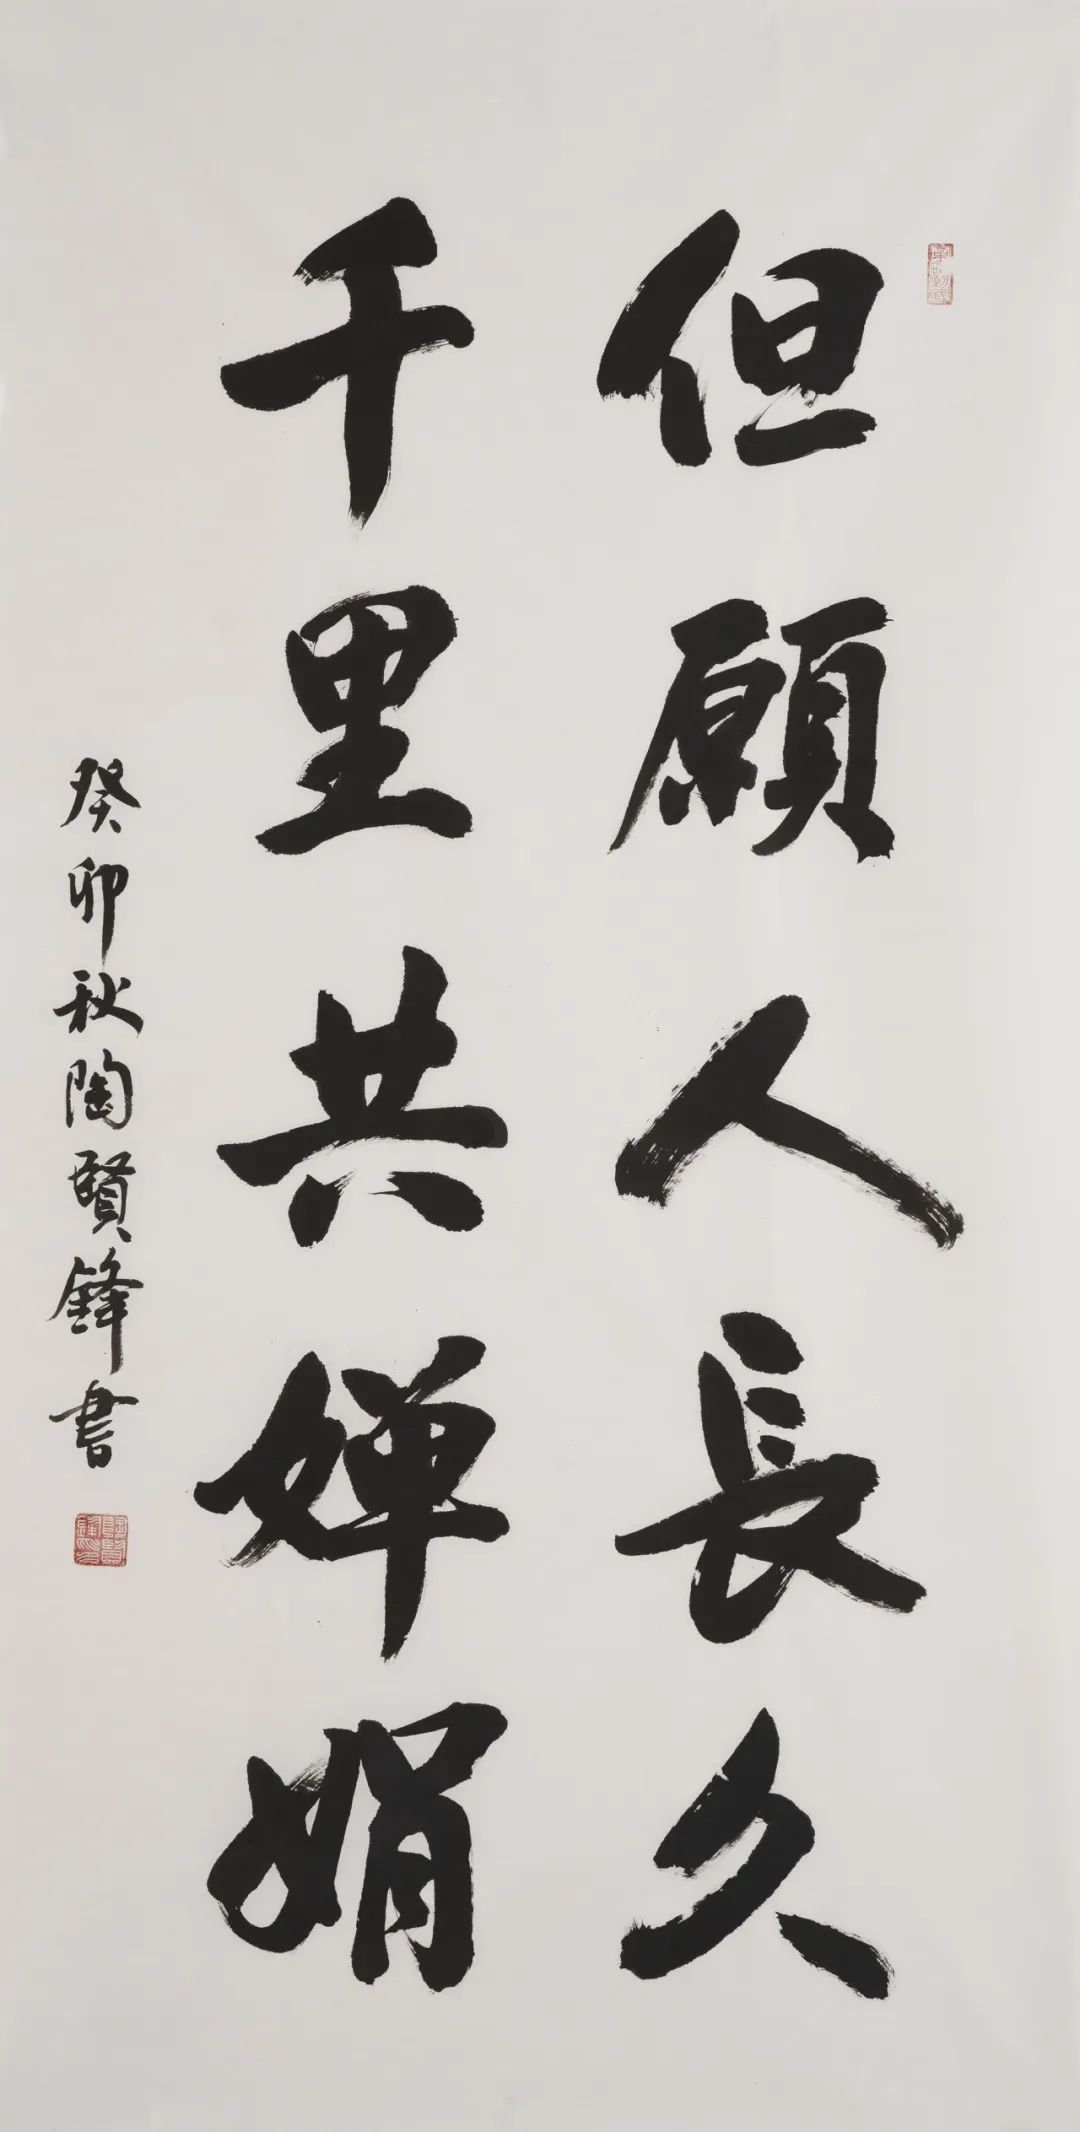 但願人長久
千里共嬋娟
癸卯秋陶賢鋒書